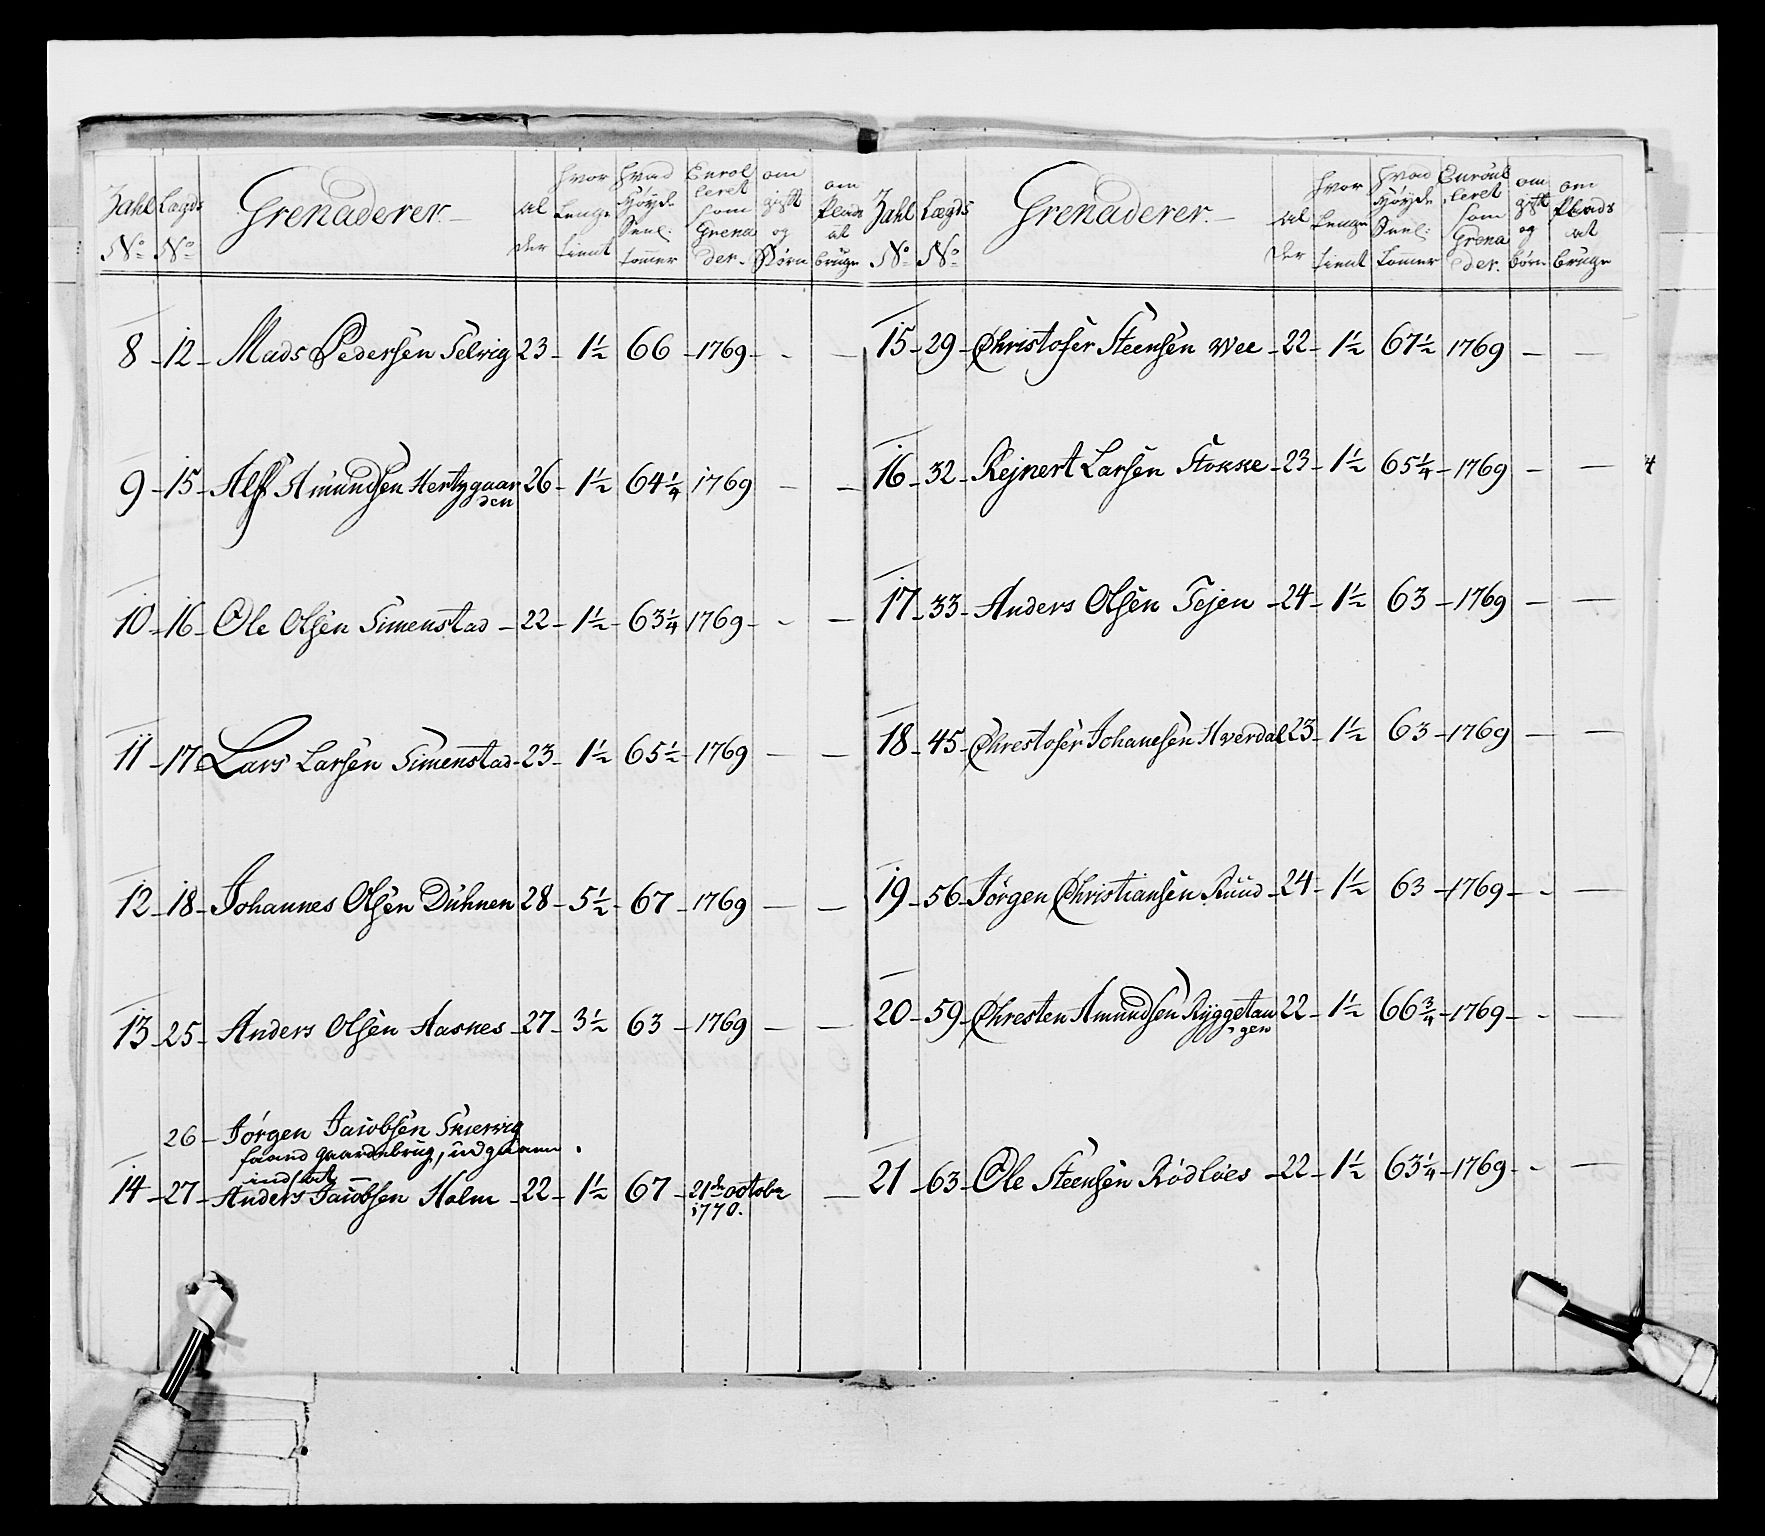 Zahl Lægds Grenaderer al hvor hvad Enrol om om
N° N° der Lenge Høyde leret gift Plads
tient Sænl: som og at
tommer Grena Børn bruge
der.
8 - 12 - Mads Pedersen Selvig 23 - 1½ 66 - 1769 - - -
9 - 15 - Alf Amundsen Hertzgaar 26 - 1½ 64¼ 1769 - -
den
10 - 16 - Ole Olsen Simenstad - 22 - 1½ - 63¼ 1769 - - -
11 - 17 Lars Larsen Simenstad - 23 - 1½ 65½ - 1769 - -
12 - 18 - Johannes Olsen Duhnen 28 - 5½ - 67 - 1769 - -
13 - 25 - Anders Olsen Aasnes - 27 - 3½ 63 - 1769 - -
26 - Jørgen Jacobsen
faaed gaardebrug, udgaaen.
indsadt
14 - 27 - Anders Jacobsen Holm - 22 - 1½ 67 - 21de octobr -
1770.
Zahl Lægds Grenaderer al hvor hvad Enroul om om
N° N° der Lenge Høyde leret gift Plads
tient Sænl: som og at
tommer Grena børn bruge
der.
15 - 29 - Christofer Steensen Wee - 22 - 1½ 67½ 1769 - -
16 - 32 - Rejnert Larsen Stokke - 23 - 1½ 65¼ - 1769 - -
17 - 33 - Anders Olsen Tejen - 24 - 1½ 63 - 1769 - -
18 - 45 - Chrestofer Johanesen Hverdal 23 - 1½ 63 - 1769 - -
19 - 56 - Jørgen Christiansen Ruud - 24 - 1½ 63 - 1769 - - -
20 - 59 - Chresten Amundsen Ryggetan 22 - 1½ 66¾ - 1769 - - -
gen
21 - 63 - Ole Steensen Rødløes - 22 - 1½ 63¼ - 1769 - - -